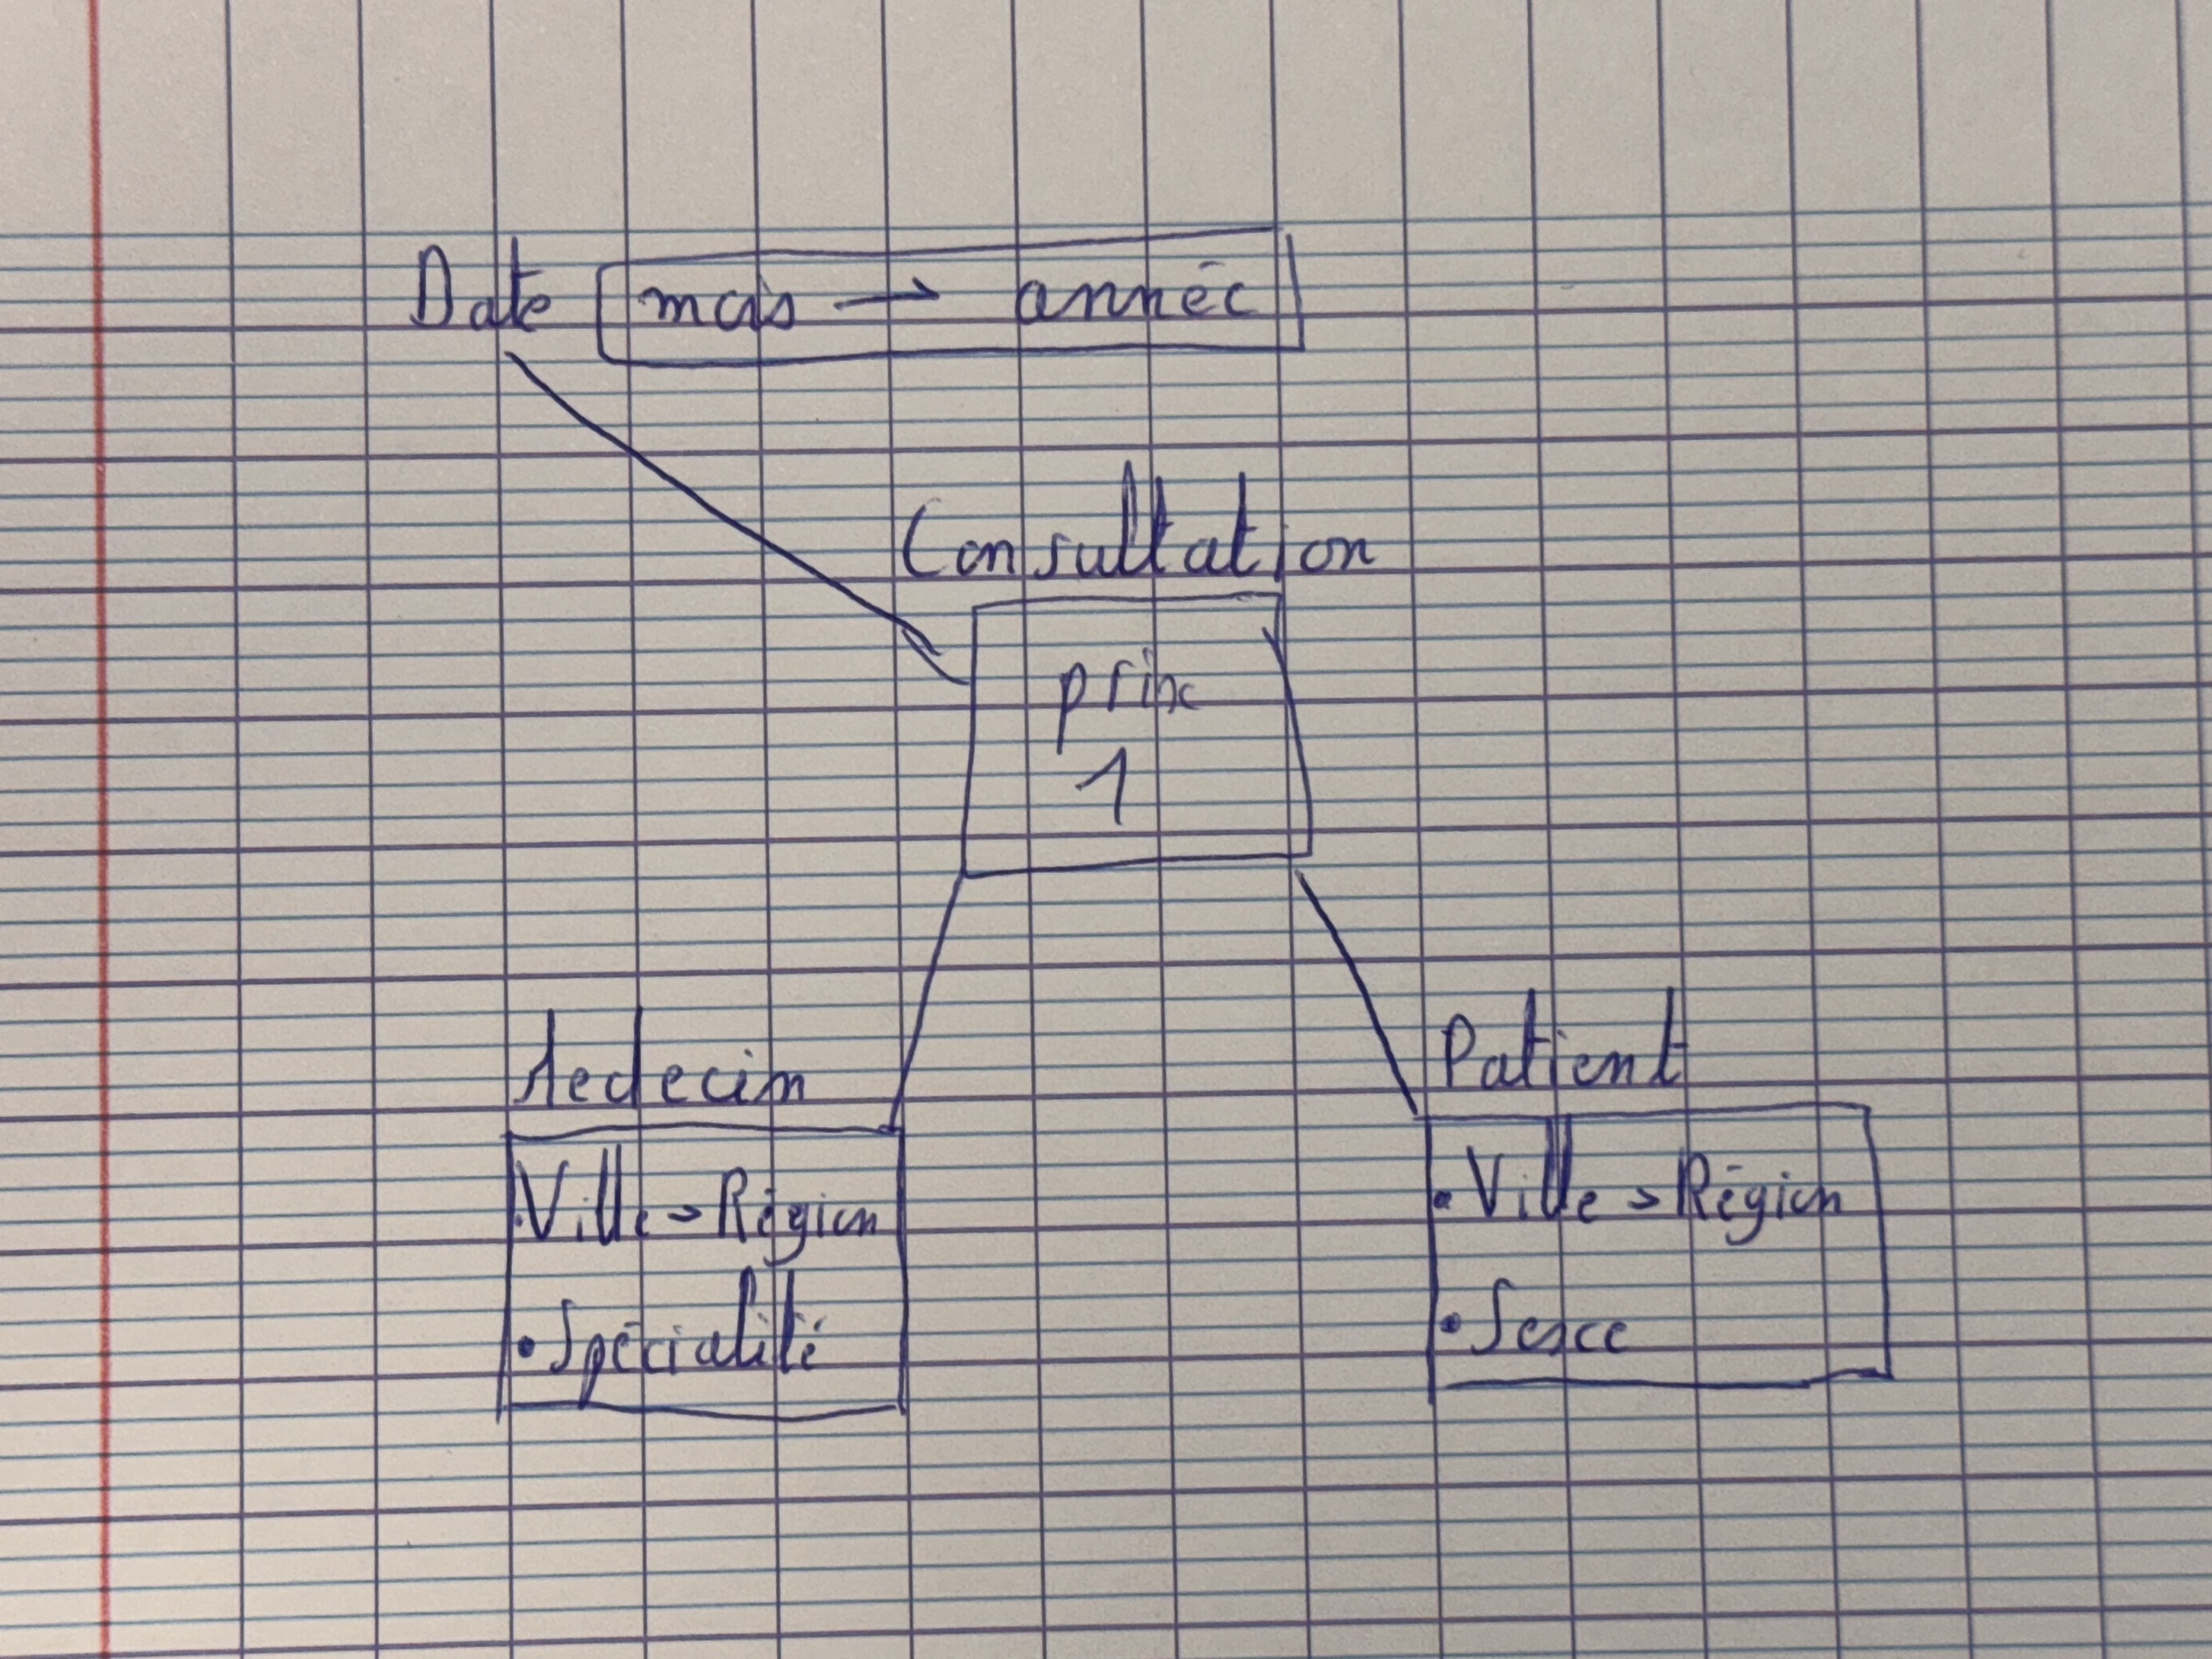 Date mois → année
Consultation
prix
1
Medecin
Patient
•Ville → Région
• Spécialité
• Ville → Région
• Sexe